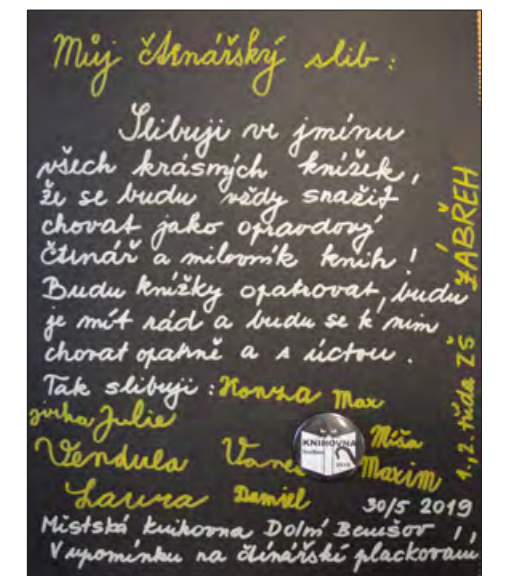 Můj čtenářský slib :
Slibuji ve jménu
všech krásných knížek,
že se budu vždy snažit
chovat jako opravdový
čtenář a milovník knih !
Budu knížky opatrovat, budu
je mít rád a budu se k nim
chovat opatrně a s úctou .
Tak slibuji : Honza Max
Jirka Julie
Vendula Míša
Maxim
Laura Daniel
KNIHOVNA
30/5 2019
Městská knihovna Dolní Benešov !,
V upomínku na čtenářské plackování
1., 2. třída ZŠ ZÁBŘEH